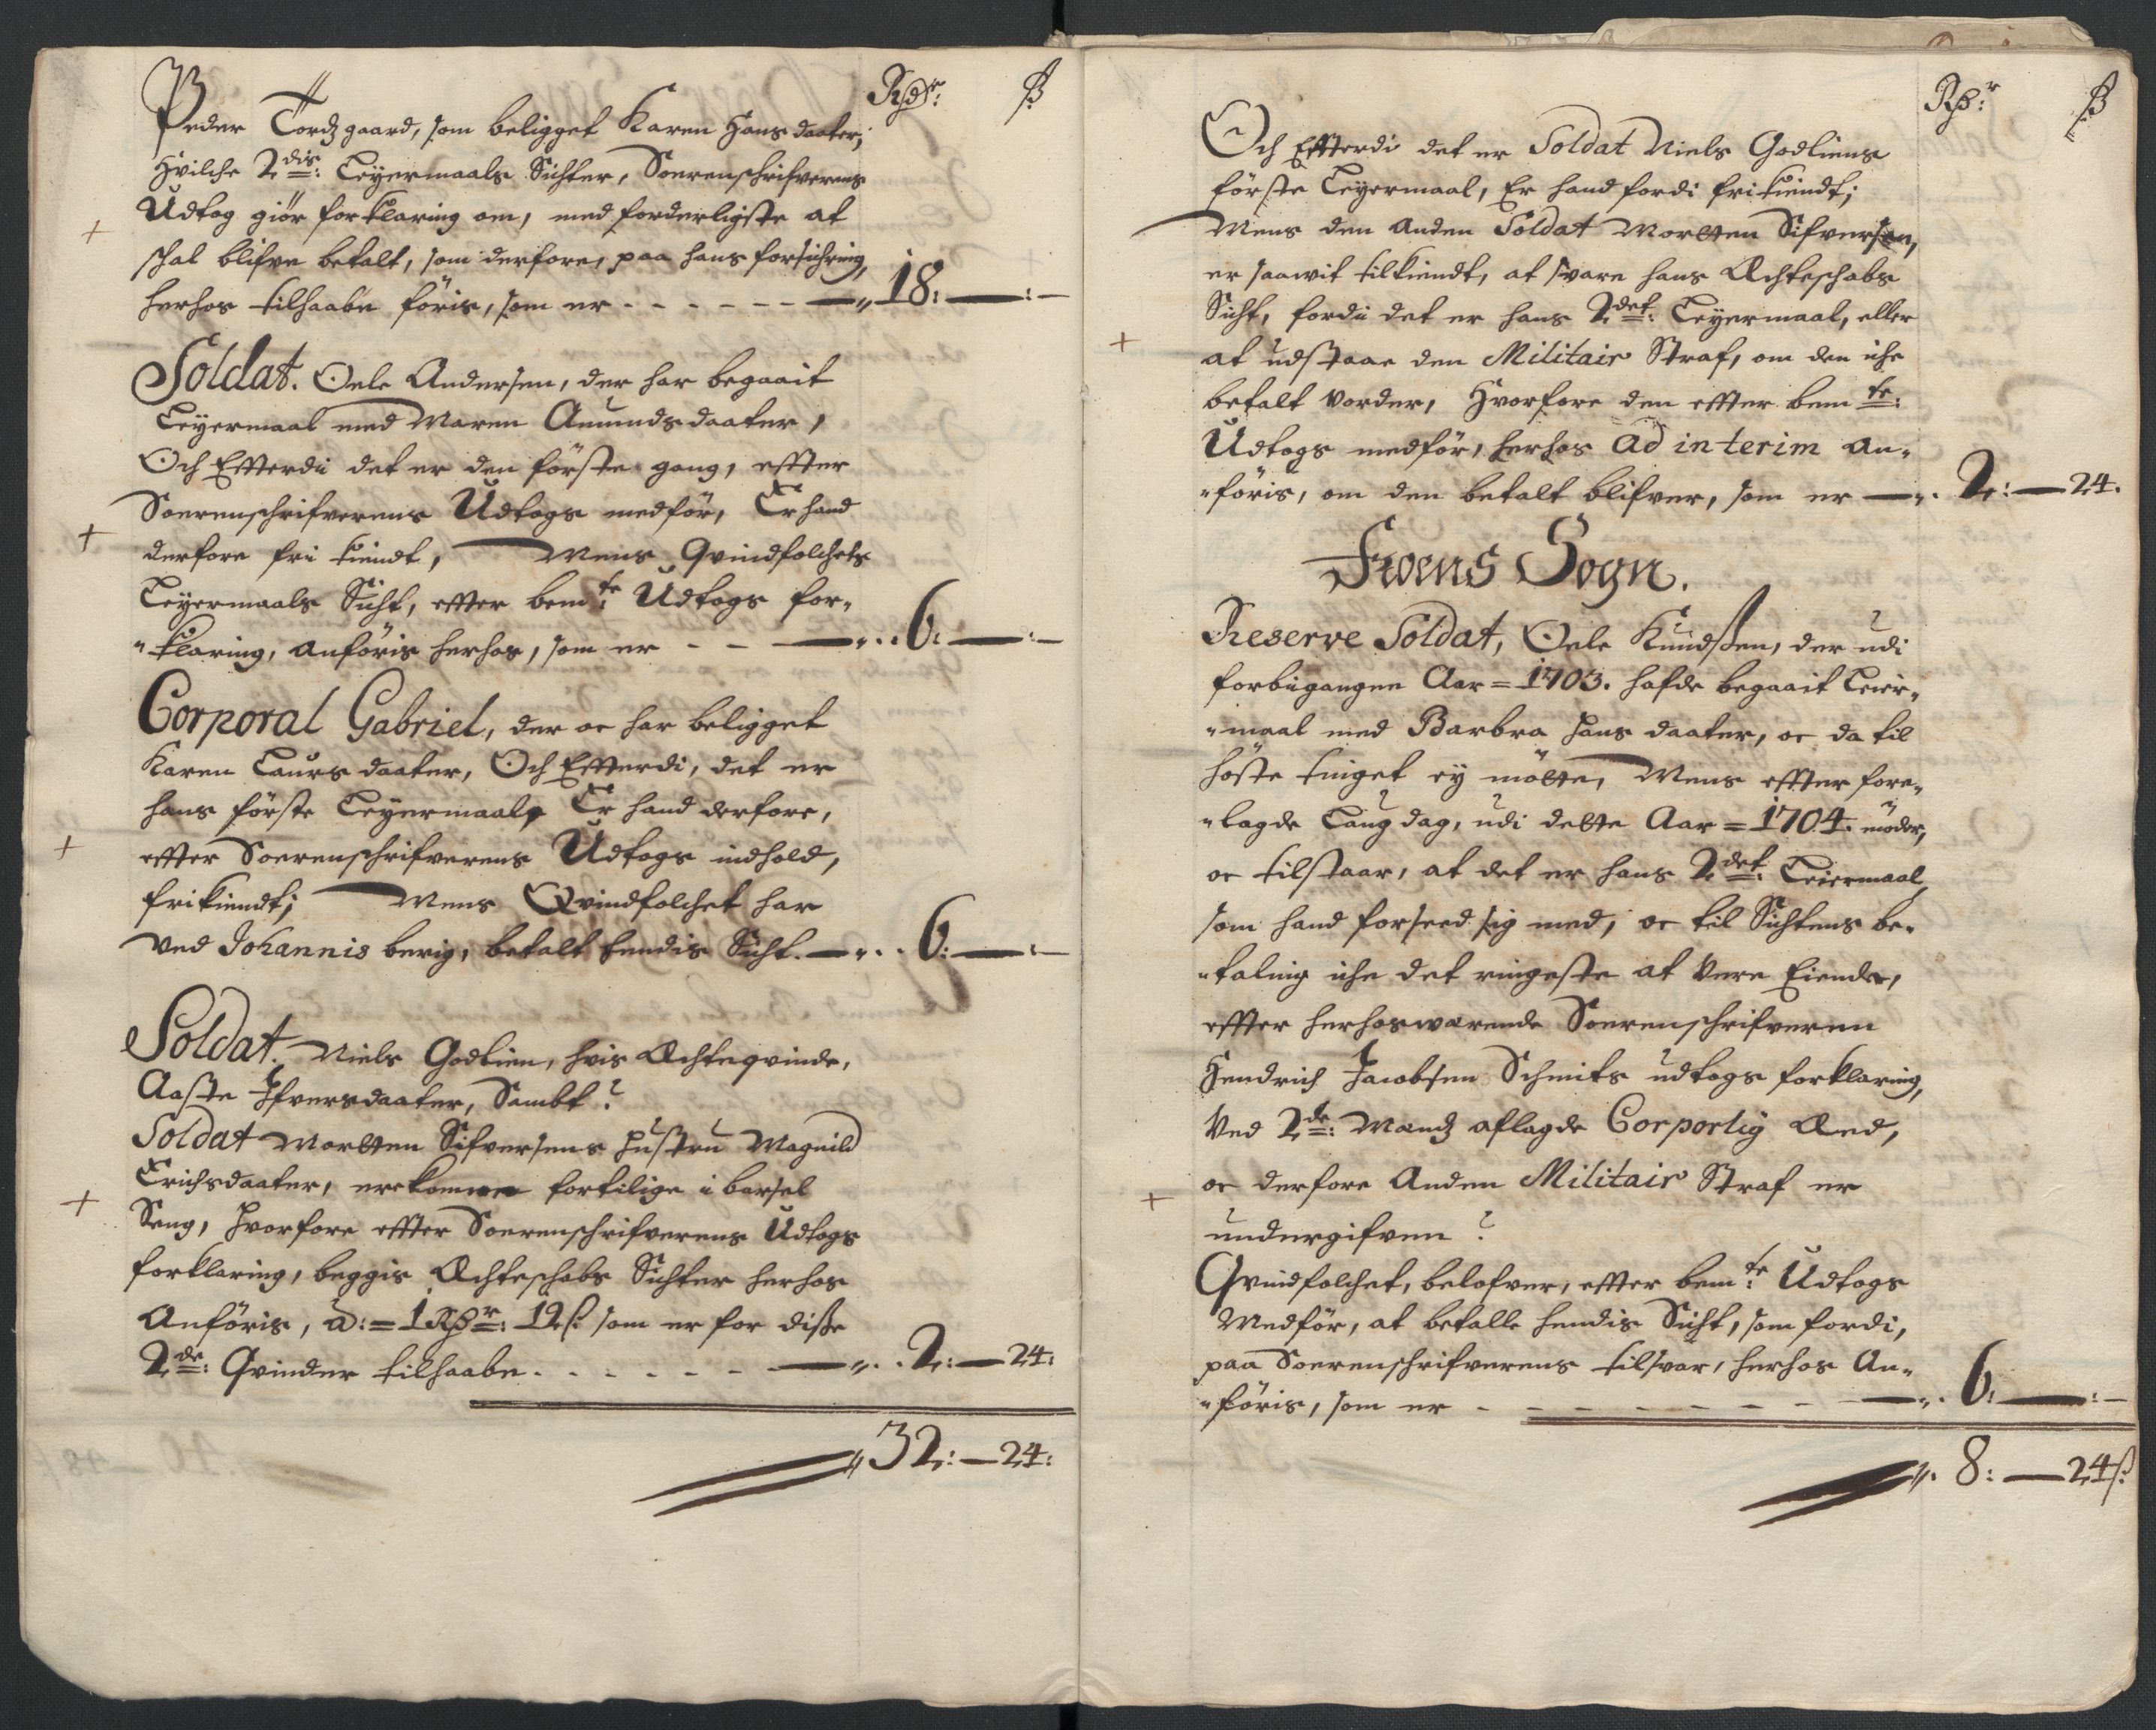 Rdr: ß
Peder Tordzgaard, som beligget Karen Hansdaater;
Hvilche 2dis: Leyermaals Sichter, Sorenschrifverens
Udtog giör forklaring om, med forderligste at
schal blifve betalt, som derfore, paa hans forsichring,
herhos tilhaabe föris, som er - - - - - - 18: — : —
Soldat. Oele Andersen, der har begaait
Leyermaal med Maren Amundsdaater,
Och Efterdi det er den förste gang, effter
Sorenschrifverens Udtogs medför, Er hand
derfore fri kiendt, Mens Qvindfolchets
Leyermaals Sicht, effter bemte: Udtogs for-
-klaring, anföris herhos, som er - - — 6: — : —
Corporal Gabriel, der oc har beligget
Karen Laursdaater, Och Efterdi, det er
hans förste Leyermaal, Er hand derfore,
effter Sorenschrifverens Udtogs indhold,
frikiendt; Mens Qvindfolchet har
ved Johannis berig, betalt hendis Sicht. — 6: — : —
Soldat. Niels Godlien, hvis Echteqvinde,
Aaste Ifversdaater, Sambt
Soldat Morten Sifversens hustru Magnild
Erichsdaater, ere komen fortilige i barsel
Seng, hvorfore effter Sorenschrifverens Udtogs
forklaring, beggis Echteschabs Sichter herhos
Anföris, a: = 1 Rdr: 12 ß: som er for disse
2de: Qvinder tilhaabe. - - - - - — 2: — 24:
32: — 24:
Rdr: ß
Och Efterdi det er Soldat Niels Godliens
förste Leyermaal, Er hand fordi frikiendt;
Mens den anden Soldat Morten Sifversen,
er saawit tilkiendt, at svare hans Echteschabs
Sicht, fordi det er hans 2det: Leyermaal, eller
at udstaae den Militair Straf, om den iche
betalt vorder, Hvorfore den effter bemte:
Udtogs medför, herhos ad interim an-
-föris, om den betalt blifver, som er — 2: — 24.
Froens Sogn.
Reserve Soldat, Oele Knudßen, der udi
forbigangne Aar = 1703. hafde begaait Leier-
-maal med Barbra Hansdaater, oc da til
höste tinget ey mötte, Mens effter fore-
-lagde Laugdag, udi dette Aar = 1704. möder,
oc tilstaar, at det er hans 2det: Leiermaal,
som hand forseed sig med, oc til Sichtens be-
-taling iche det ringeste at Vere Eiende,
effter herhosværende Sorenschrifveren
Hendrich Jacobsen Schmits udtogs forklaring,
Ved 2de: Mandz aflagde Corporlig Æed,
oc derfore Anden Militair Straf er
undergifven
Qvindfolchet, belofver, effter bemte: Udtogs
Medför, at betalle hendis Sicht, som fordi,
paa Sorenschrifverens tilsvar, herhos An-
-föris, som er - - - - - - — 6: — : —
8: — 24ß: